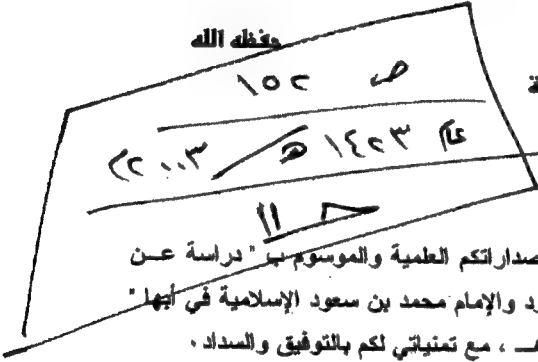 حفظه الله
ص ١٥٢
ة
عام ١٤٢٣ هـ / ٢٠٠٣م
حـ ١١
صداراتكم العلمية والموسوم ب " دراسة عــن
ود والإمام محمد بن سعود الإسلامية في أبها "
هــ ، مع تمنياتي لكم بالتوفيق والسداد .